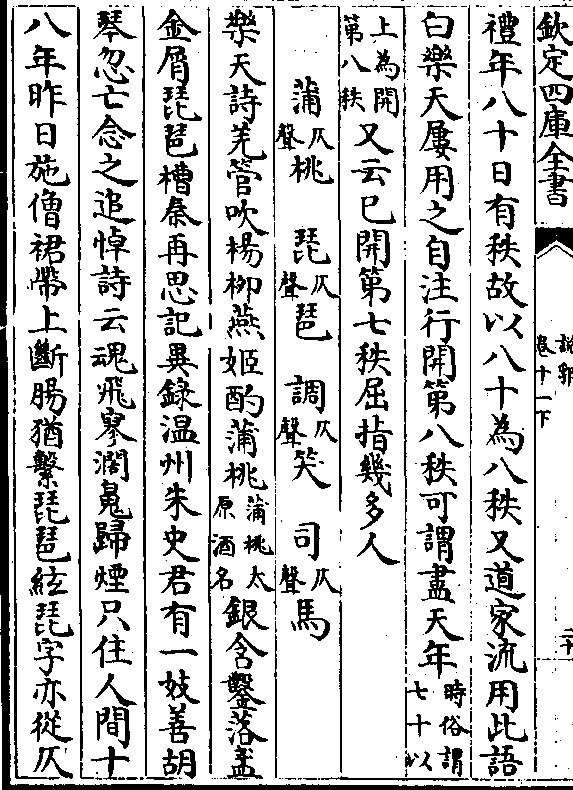 欽定四庫全書
說郛
卷十一下
二十
禮年八十日有秩故以八十為八秩又道家流用此語
白樂天屢用之自注行開第八秩可謂盡天年時俗謂七十以
上為開第八秩又云已開第七秩屈指幾多人
蒲仄聲桃 琵仄聲琶 調仄聲笑 司仄聲馬
樂天詩羌管吹楊柳燕姬酌蒲桃蒲桃太原酒名銀含鑿落盞
金屑琵琶槽秦再思記異錄温州朱史君有一妓善胡
琴忽亡念之追悼詩云魂飛寥濶䰟歸煙只住人間十
八年昨日施僧裙帶上斷腸猶繫琵琶絃琵字亦從仄